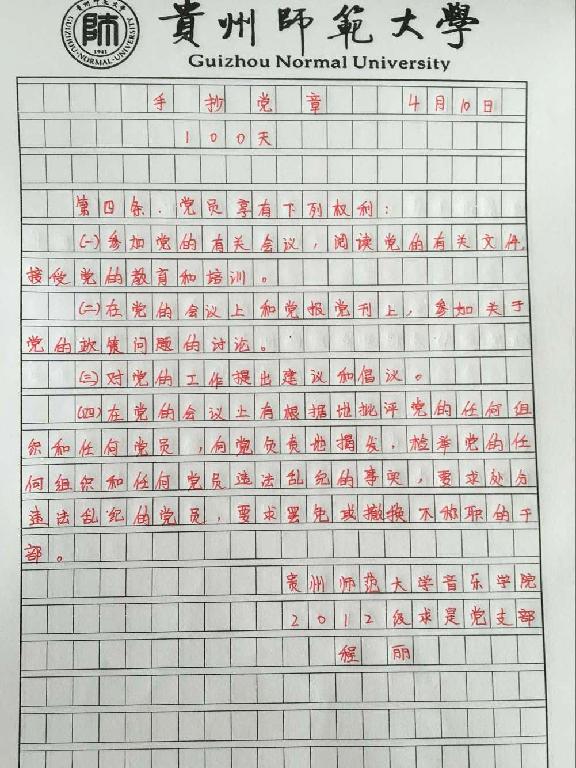 貴州師範大學
GUIZHOU·NORMAL·UNIVERSITY
師
1941
Guizhou Normal University
手抄党章 4月10日
100天
第四条.党员享有下列权利:
(一)参加党的有关会议,阅读党的有关文件,
接受党的教育和培训。
(二)在党的会议上和党报党刊上,参加关于
党的政策问题的讨论。
(三)对党的工作提出建议和倡议。
(四)在党的会议上有根据地批评党的任何组
织和任何党员,向党负责地揭发,检举党的任
何组织和任何党员违法乱纪的事实,要求处分
违法乱纪的党员,要求罢免或撤换不称职的干
部。
贵州师范大学音乐学院
2012级求是党支部
程丽